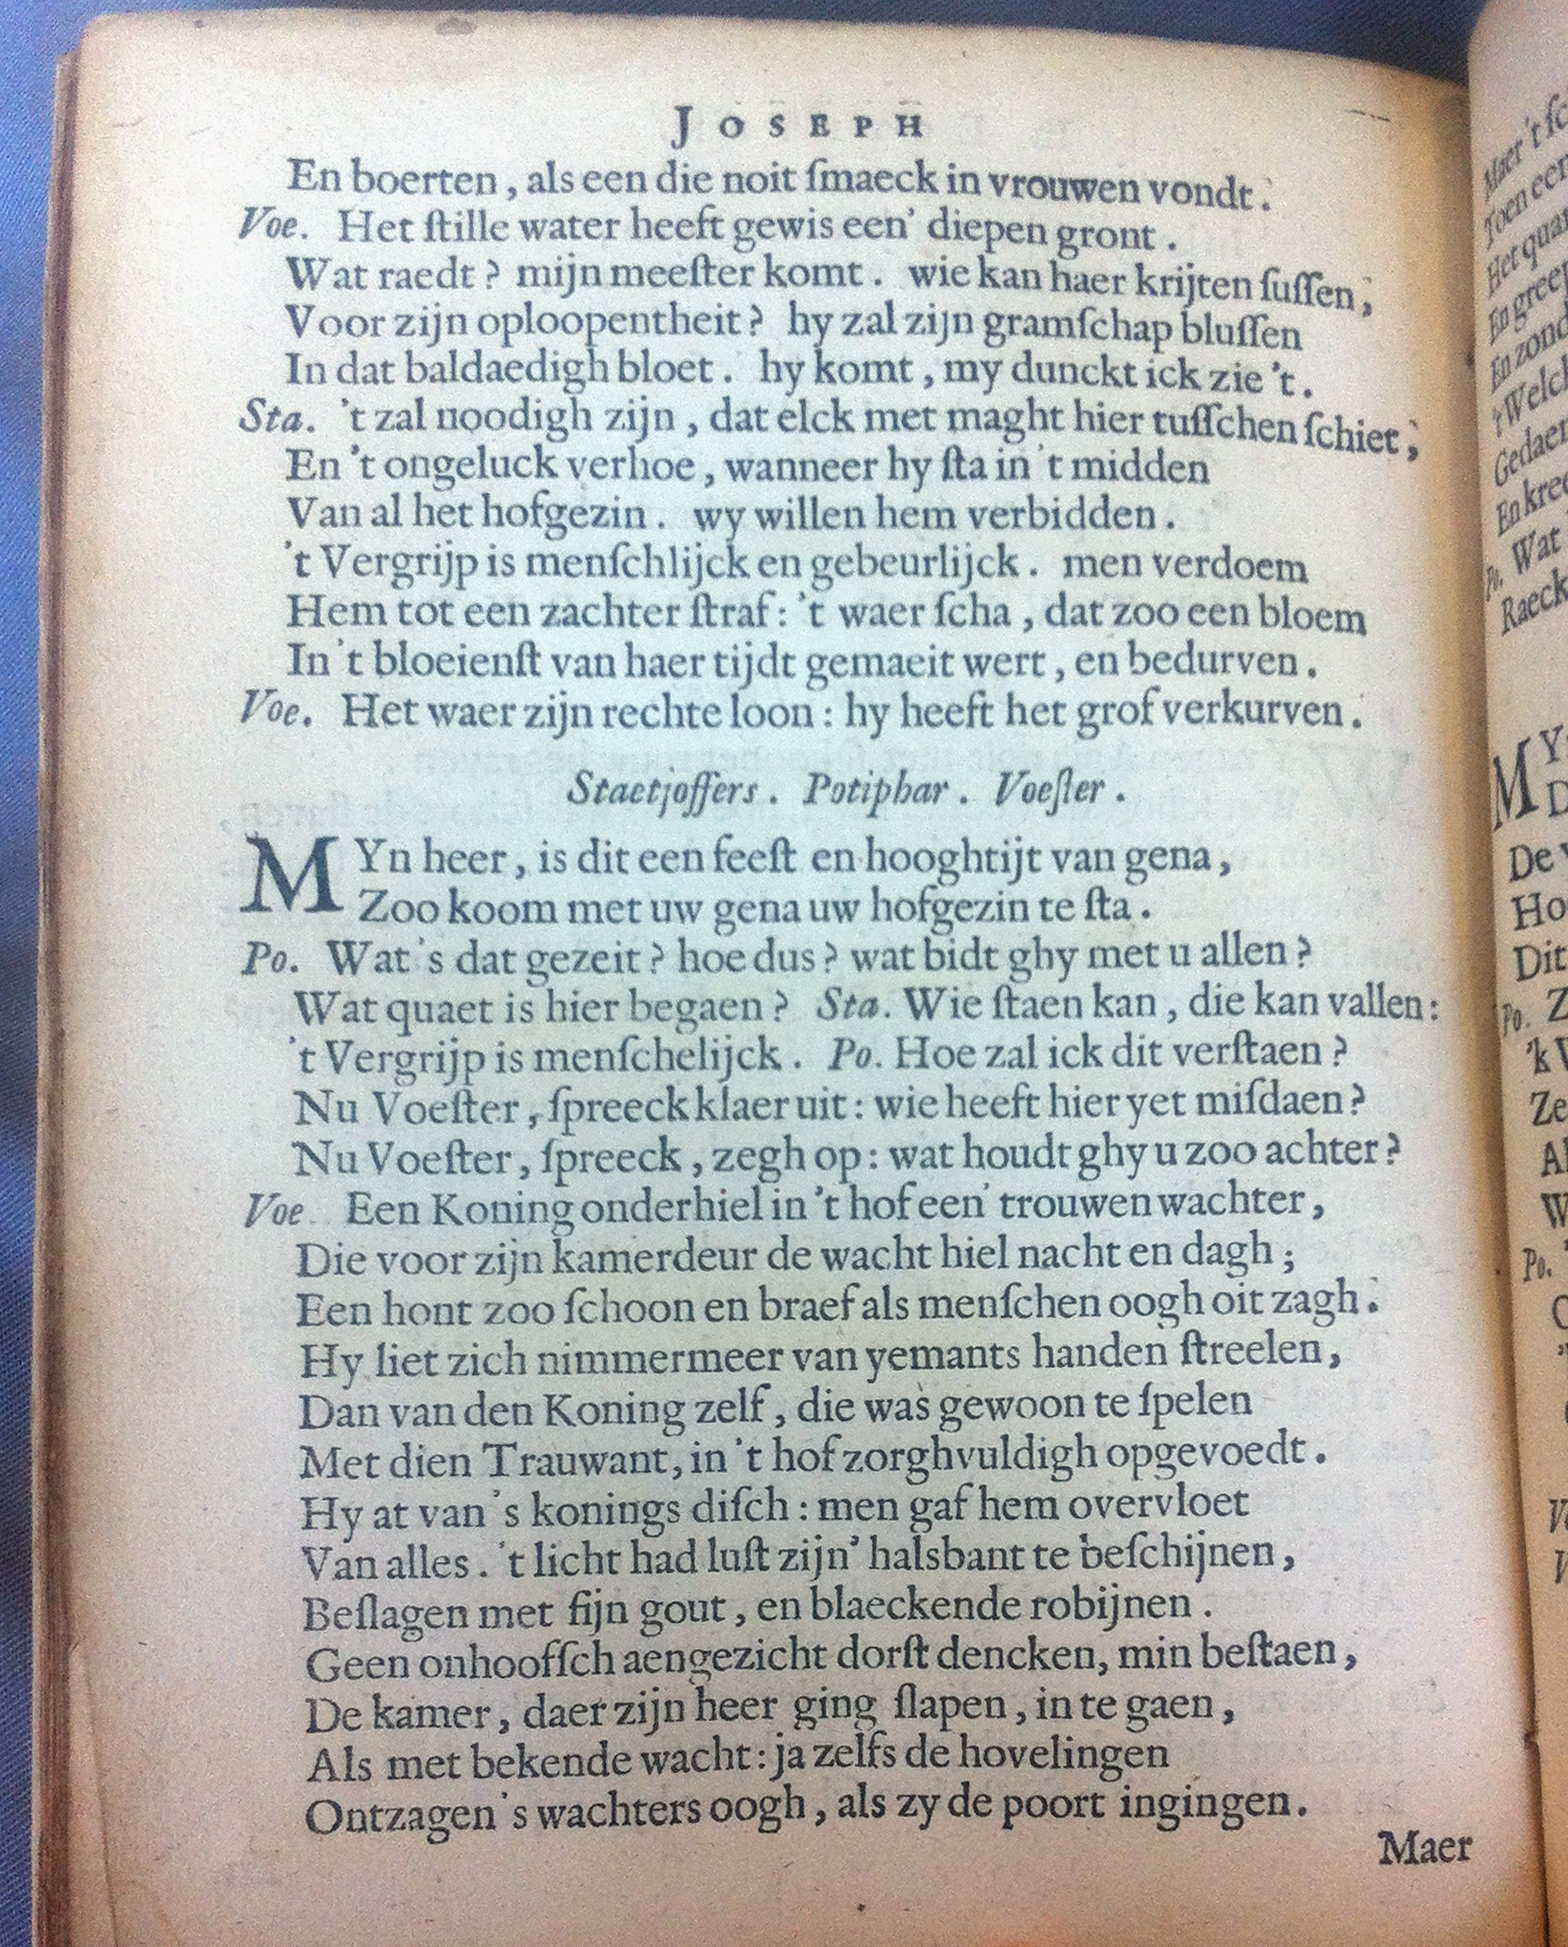 JOSEPH
En boerten, als een die noit ſmaeck in vrouwen vondt.
Voe. Het ſtille water heeft gewis een' diepen gront.
Wat raedt? mijn meeſter komt. wie kan haer krijten ſuſſen,
Voor zijn oploopentheit? hy zal zijn gramſchap bluſſen
In dat baldaedigh bloet. hy komt, my dunckt ick zie 't.
Sta. 't zal noodigh zijn, dat elck met maght hier tuſſchen ſchiet,
En 't ongeluck verhoe, wanneer hy ſta in 't midden
Van al het hofgezin. wy willen hem verbidden.
't Vergrijp is menſchlijck en gebeurlijck. men verdoem
Hem tot een zachter ſtraf: 't waer ſcha, dat zoo een bloem
In 't bloeienſt van haer tijdt gemaeit wert, en bedurven.
Voe. Het waer zijn rechte loon: hy heeft het grof verkurven.
Staetjoffers. Potiphar. Voeſter.
MYn heer, is dit een feeſt en hooghtijt van gena,
Zoo koom met uw gena uw hofgezin te ſta.
Po. Wat 's dat gezeit? hoe dus? wat bidt ghy met u allen?
Wat quaet is hier begaen? Sta. Wie ſtaen kan, die kan vallen:
't Vergrijp is menſchelijck. Po. Hoe zal ick dit verſtaen?
Nu Voeſter, ſpreeck klaer uit: wie heeft hier yet miſdaen?
Nu Voeſter, ſpreeck, zegh op: wat houdt ghy u zoo achter?
Voe. Een Koning onderhiel in 't hof een' trouwen wachter,
Die voor zijn kamerdeur de wacht hiel nacht en dagh;
Een hont zoo ſchoon en braef als menſchen oogh oit zagh.
Hy liet zich nimmermeer van yemants handen ſtreelen,
Dan van den Koning zelf, die was gewoon te ſpelen
Met dien Trauwant, in 't hof zorghvuldigh opgevoedt.
Hy at van 's konings diſch: men gaf hem overvloet
Van alles. 't licht had luſt zijn' halsbant te beſchijnen,
Beſlagen met fijn gout, en blaeckende robijnen.
Geen onhooſſch aengezicht dorſt dencken, min beſtaen,
De kamer, daer zijn heer ging ſlapen, in te gaen,
Als met bekende wacht: ja zelfs de hovelingen
Ontzagen 's wachters oogh, als zy de poort ingingen.
Maer
Maer 't
Toen
Het
En
En
't Welck
En
Po. Wat
Raeck
MY
D
De
Ho
Dit
Po. Z
'k
Ze
Al
W
Po.